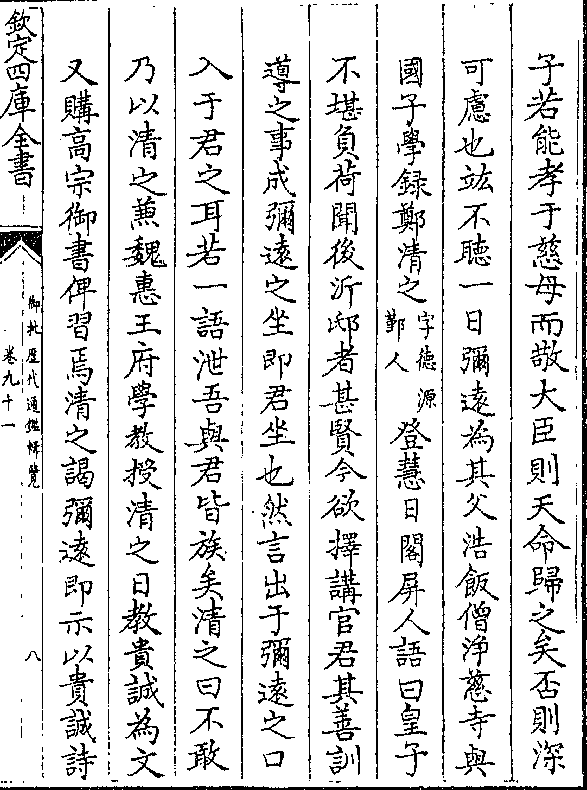 子若能孝于慈母而敬大臣則天命歸之矣否則深
可慮也竝不聽一日彌遠為其父浩飯僧淨慈寺與
國子學録鄭清之字德源鄞人登慧日閣屏人語曰皇子
不堪負荷聞後沂邸者甚賢今欲擇講官君其善訓
導之事成彌遠之坐即君坐也然言出于彌遠之口
入于君之耳若一語泄吾與君皆族矣清之曰不敢
乃以清之兼魏惠王府學教授清之日教貴誠為文
又購高宗御書俾習焉清之謁彌遠即示以貴誠詩
欽定四庫全書
御批歷代通鑑輯覽
卷九十一
八